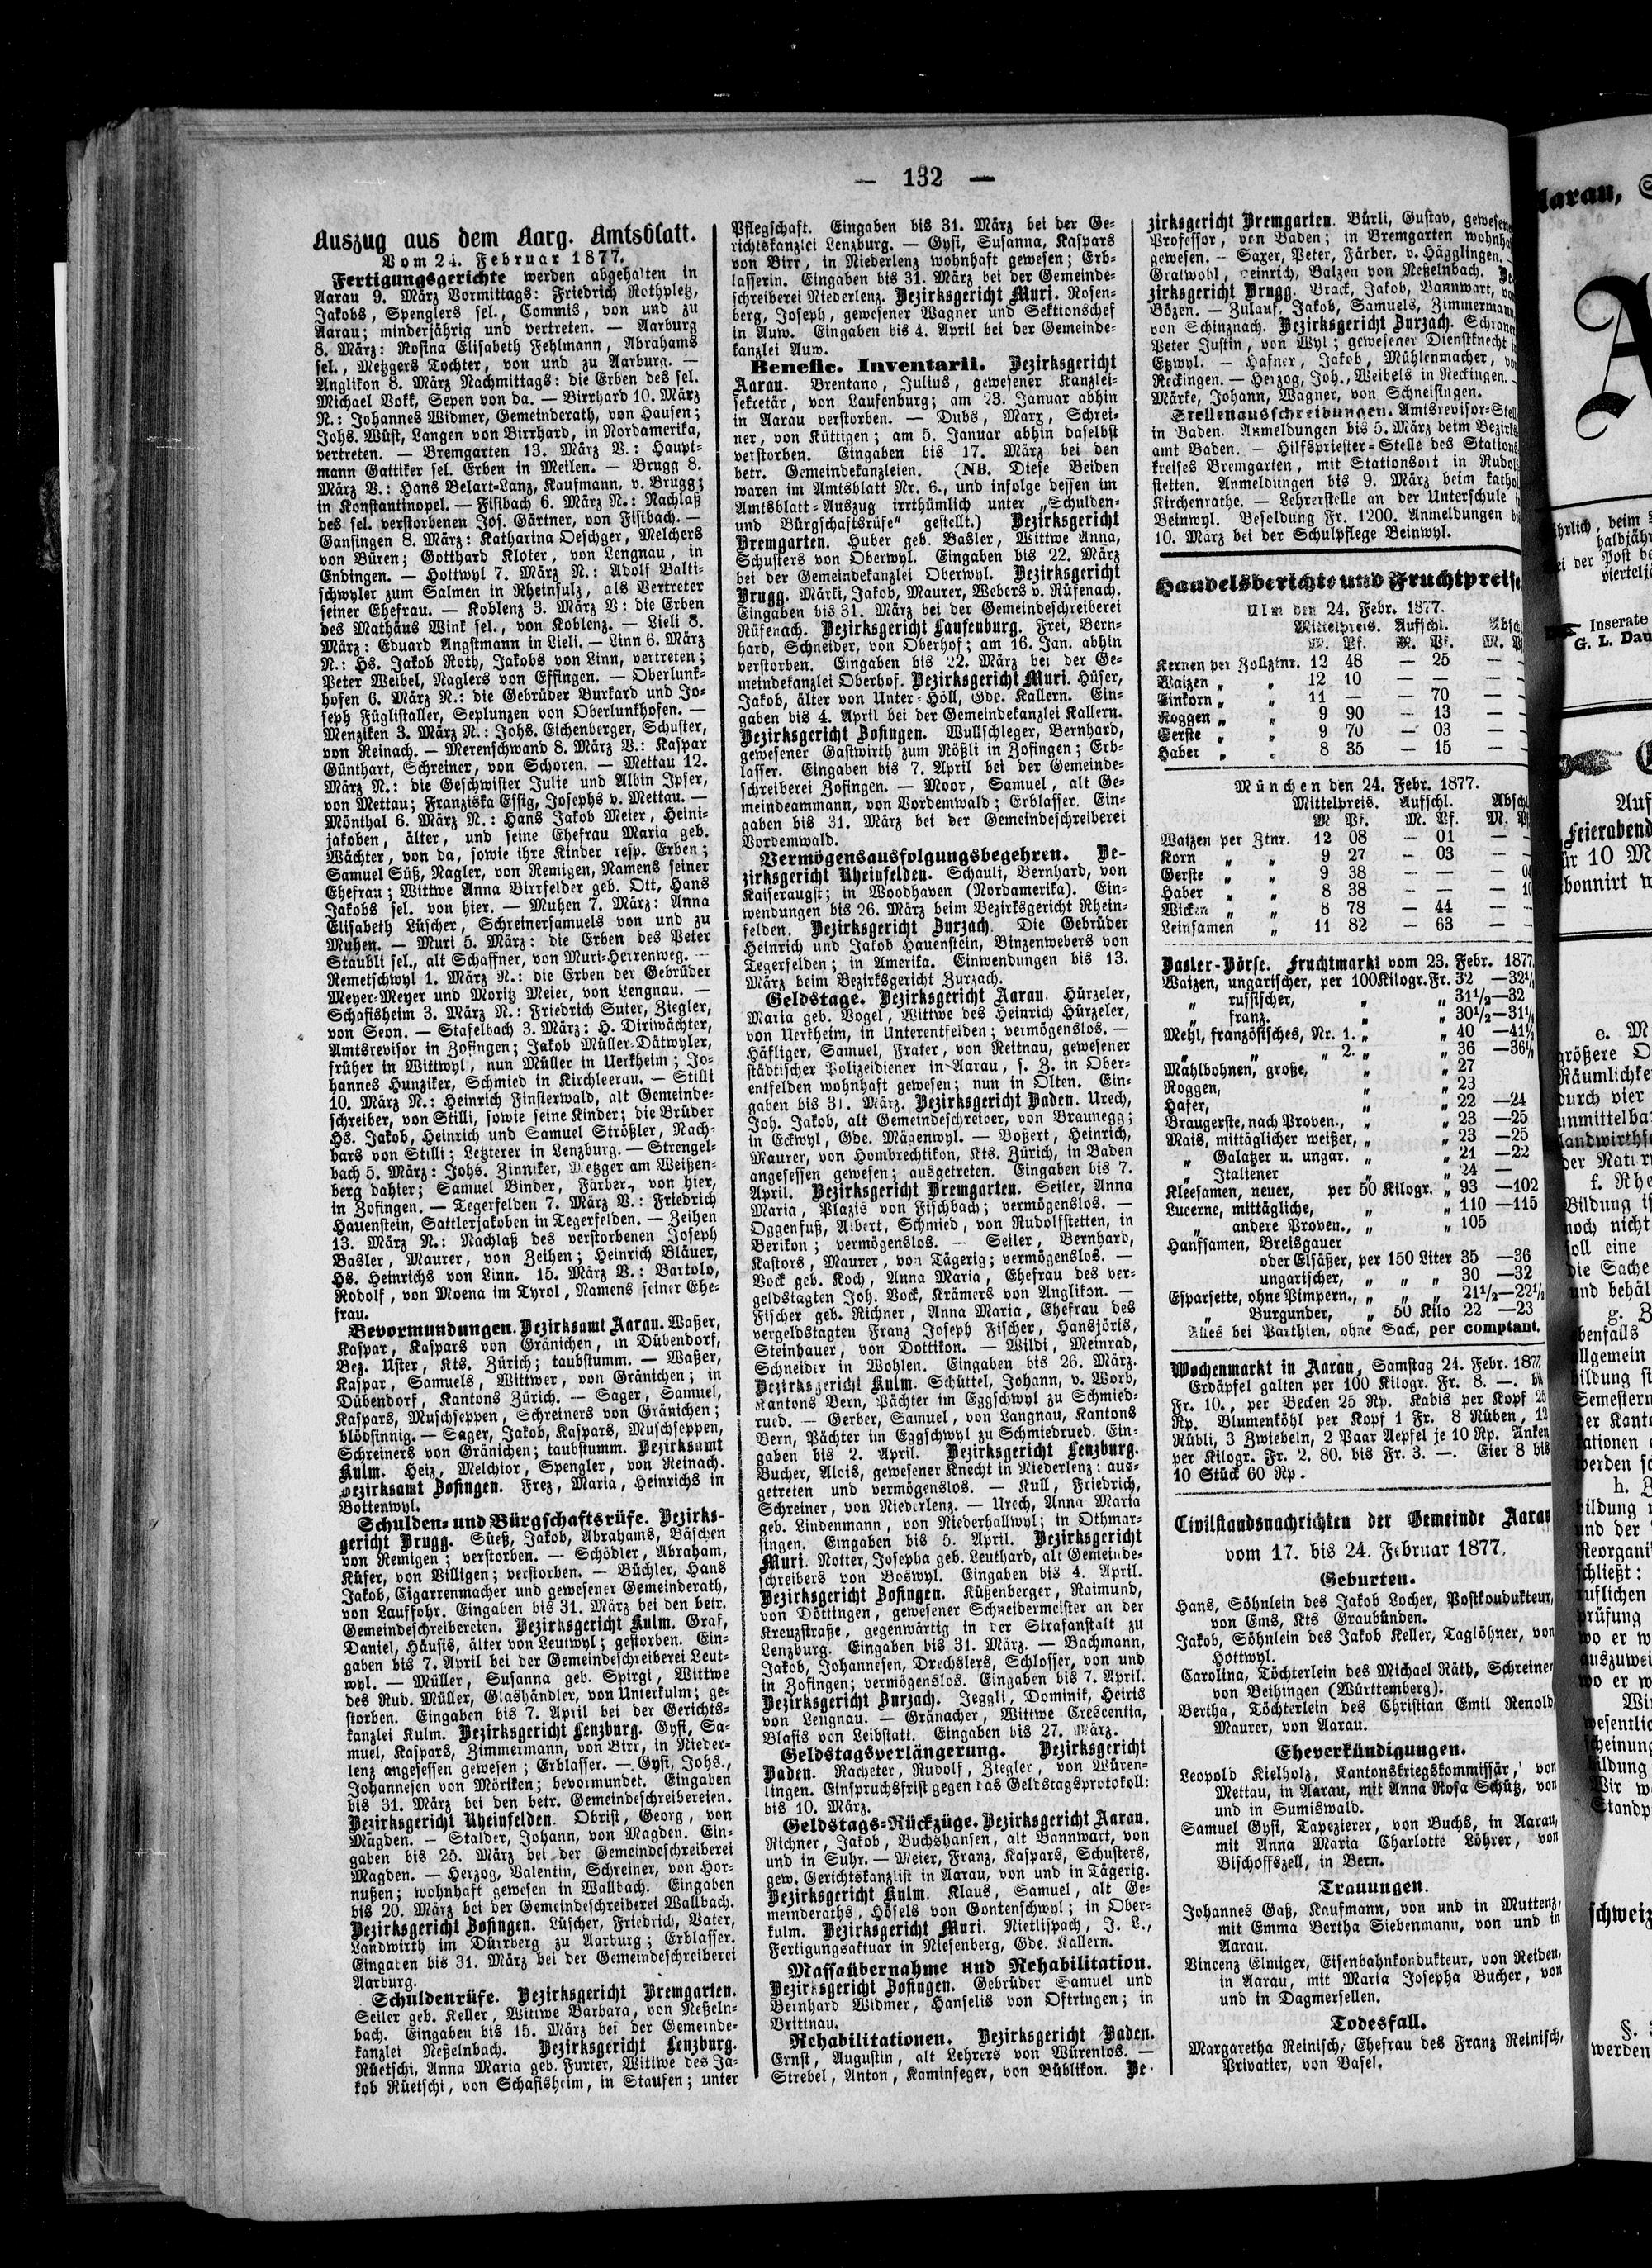 — 132 —
Auszug aus dem Aarg. Amtsblatt.
Vom 24. Februar 1877.
Fertigungsgerichte werden abgehalten in
Aarau 9. März Vormittags: Friedrich Rothpletz,
Jakobs, Spenglers sel., Commis, von und zu
Aarau; minderjährig und vertreten. — Aarburg
8. März: Rosina Elisabeth Fehlmann, Abrahams
sel., Metzgers Tochter, von und zu Aarburg. —
Anglikon 8. März Nachmittags: die Erben des sel.
Michael Vokk, Sepen von da. — Birrhard 10. März
N.: Johannes Widmer, Gemeinderath, von Hausen;
Johs. Wüst, Langen von Birrhard, in Nordamerika,
vertreten. — Bremgarten 13. März V.: Haupt-
mann Gattiker sel. Erben in Meilen. — Brugg 8.
März V.: Hans Belart-Lanz, Kaufmann, v. Brugg;
in Konstantinopel. — Fisibach 6. März N.: Nachlaß
des sel. verstorbenen Jos. Gärtner, von Fisibach. —
Gansingen 8. März: Katharina Oeschger, Melchers
von Büren; Gotthard Kloter, von Lengnau, in
Endingen. — Hottwyl 7. März N.: Adolf Balti-
schwyler zum Salmen in Rheinsulz, als Vertreter
seiner Ehefrau. — Koblenz 3. März V: die Erben
des Mathäus Wink sel., von Koblenz. — Lieli 8.
März: Eduard Angstmann in Lieli. — Linn 6. März
N.: Hs. Jakob Roth, Jakobs von Linn, vertreten;
Peter Weibel, Naglers von Effingen. — Oberlunk-
hofen 6. März N.: die Gebrüder Burkard und Jo-
seph Füglistaller, Seplunzen von Oberlunkhofen. —
Menziken 3. März N.: Johs. Eichenberger, Schuster,
von Reinach. — Merenschwand 8. März V.: Kaspar
Günthart, Schreiner, von Schoren. — Mettau 12.
März N.: die Geschwister Julie und Albin Ipser,
von Mettau; Franziska Essig, Josephs v. Mettau. —
Mönthal 6. März N.: Hans Jakob Meier, Heini-
jakoben, älter, und seine Ehefrau Maria geb.
Wächter, von da, sowie ihre Kinder resp. Erben;
Samuel Süß, Nagler, von Remigen, Namens seiner
Ehefrau; Wittwe Anna Birrfelder geb. Ott, Hans
Jakobs sel. von hier. — Muhen 7. März: Anna
Elisabeth Lüscher, Schreinersamuels von und zu
Muhen. — Muri 5. März: die Erben des Peter
Staubli sel., alt Schaffner, von Muri-Herrenweg. —
Remetschwyl 1. März N.: die Erben der Gebrüder
Meyer-Meyer und Moritz Meier, von Lengnau. —
Schafisheim 3. März N.: Friedrich Suter, Ziegler,
von Seon. — Stafelbach 3. März: H. Diriwächter,
Amtsrevisor in Zofingen; Jakob Müller-Dätwyler,
früher in Wittwyl, nun Müller in Uerkheim; Jo-
hannes Hunziker, Schmied in Kirchleerau. — Stilli
10. März N.: Heinrich Finsterwald, alt Gemeinde-
schreiber, von Stilli, sowie seine Kinder; die Brüder
Hs. Jakob, Heinrich und Samuel Strößler, Nach-
bars von Stilli; Letzterer in Lenzburg. — Strengel-
bach 5. März: Johs. Zinniker, Metzger am Weißen-
berg dahier; Samuel Binder, Färber, von hier,
in Zofingen. — Tegerfelden 7. März V.: Friedrich
Hauenstein, Sattlerjakoben in Tegerfelden. — Zeihen
13. März N.: Nachlaß des verstorbenen Joseph
Basler, Maurer, von Zeihen; Heinrich Bläuer,
Hs. Heinrichs von Linn. 15. März V.: Bartolo,
Rodolf, von Moena im Tyrol, Namens seiner Ehe-
frau.
Bevormundungen. Bezirksamt Aarau. Waßer,
Kaspar, Kaspars von Gränichen, in Dübendorf,
Bez. Uster, Kts. Zürich; taubstumm. — Waßer,
Kaspar, Samuels, Wittwer, von Gränichen; in
Dübendorf, Kantons Zürich. — Sager, Samuel,
Kaspars, Muschseppen, Schreiners von Gränichen;
blödsinnig. — Sager, Jakob, Kaspars, Muschseppen,
Schreiners von Gränichen; taubstumm. Bezirksamt
Kulm. Heiz, Melchior, Spengler, von Reinach.
Bezirksamt Zofingen. Frez, Maria, Heinrichs in
Bottenwyl.
Schulden- und Bürgschaftsrüfe. Bezirks-
gericht Brugg. Süeß, Jakob, Abrahams, Bäschen
von Remigen; verstorben. — Schödler, Abraham,
Küfer, von Villigen; verstorben. — Büchler, Hans
Jakob, Cigarrenmacher und gewesener Gemeinderath,
von Lauffohr. Eingaben bis 31. März bei den betr.
Gemeindeschreibereien. Bezirksgericht Kulm. Graf,
Daniel, Häusis, älter von Leutwyl; gestorben. Ein-
gaben bis 7. April bei der Gemeindeschreiberei Leut-
wyl. — Müller, Susanna geb. Spirgi, Wittwe
des Rud. Müller, Glashändler, von Unterkulm; ge-
storben. Eingaben bis 7. April bei der Gerichts-
kanzlei Kulm. Bezirksgericht Lenzburg. Gysi, Sa-
muel, Kaspars, Zimmermann, von Birr, in Nieder-
lenz angesessen gewesen; Erblasser. — Gysi, Johs.,
Johannesen von Möriken; bevormundet. Eingaben
bis 31. März bei den betr. Gemeindeschreibereien.
Bezirksgericht Rheinfelden. Obrist, Georg, von
Magden. — Stalder, Johann, von Magden. Ein-
gaben bis 25. März bei der Gemeindeschreiberei
Magden. — Herzog, Valentin, Schreiner, von Hor-
nußen; wohnhaft gewesen in Wallbach. Eingaben
bis 20. März bei der Gemeindeschreiberei Wallbach.
Bezirksgericht Zofingen. Lüscher, Friedrich, Vater,
Landwirth im Dürrberg zu Aarburg; Erblasser.
Eingaben bis 31. März bei der Gemeindeschreiberei
Aarburg.
Schuldenrüfe. Bezirksgericht Bremgarten.
Seiler geb. Keller, Wittwe Barbara, von Neßeln-
bach. Eingaben bis 15. März bei der Gemeinde-
kanzlei Neßelnbach. Bezirksgericht Lenzburg.
Rüetschi, Anna Maria geb. Furter, Wittwe des Ja-
kob Rüetschi, von Schafisheim, in Staufen; unter
Pflegschaft. Eingaben bis 31. März bei der Ge-
richtskanzlei Lenzburg. — Gysi, Susanna, Kaspars
von Birr, in Niederlenz wohnhaft gewesen; Erb-
lasserin. Eingaben bis 31. März bei der Gemeinde-
schreiberei Niederlenz. Bezirksgericht Muri. Rosen-
berg, Joseph, gewesener Wagner und Sektionschef
in Auw. Eingaben bis 4. April bei der Gemeinde-
kanzlei Auw.
Benefic. Inventarii. Bezirksgericht
Aarau. Brentano, Julius, gewesener Kanzlei-
sekretär, von Laufenburg; am 23. Januar abhin
in Aarau verstorben. — Dubs, Marx, Schrei-
ner, von Küttigen; am 5. Januar abhin daselbst
verstorben. Eingaben bis 17. März bei den
betr. Gemeindekanzleien. (NB. Diese Beiden
waren im Amtsblatt Nr. 6., und infolge dessen im
Amtsblatt-Auszug irrthümlich unter „Schulden-
und Bürgschaftsrüfe" gestellt.) Bezirksgericht
Bremgarten. Huber geb. Basler, Wittwe Anna,
Schusters von Oberwyl. Eingaben bis 22. März
bei der Gemeindekanzlei Oberwyl. Bezirksgericht
Brugg. Märki, Jakob, Maurer, Webers v. Rüfenach.
Eingaben bis 31. März bei der Gemeindeschreiberei
Rüfenach. Bezirksgericht Laufenburg. Frei, Bern-
hard, Schneider, von Oberhof; am 16. Jan. abhin
verstorben. Eingaben bis 22. März bei der Ge-
meindekanzlei Oberhof. Bezirksgericht Muri. Hüser,
Jakob, älter von Unter-Höll, Gde. Kallern. Ein-
gaben bis 4. April bei der Gemeindekanzlei Kallern.
Bezirksgericht Zofingen. Wullschleger, Bernhard,
gewesener Gastwirth zum Rößli in Zofingen; Erb-
lasser. Eingaben bis 7. April bei der Gemeinde-
schreiberei Zofingen. — Moor, Samuel, alt Ge-
meindeammann, von Vordemwald; Erblasser. Ein-
gaben bis 31. März bei der Gemeindeschreiberei
Vordemwald.
Vermögensausfolgungsbegehren. Be-
zirksgericht Rheinfelden. Schauli, Bernhard, von
Kaiseraugst; in Woodhaven (Nordamerika). Ein-
wendungen bis 26. März beim Bezirksgericht Rhein-
felden. Bezirksgericht Zurzach. Die Gebrüder
Heinrich und Jakob Hauenstein, Binzenwebers von
Tegerfelden; in Amerika. Einwendungen bis 13.
März beim Bezirksgericht Zurzach.
Geldstage. Bezirksgericht Aarau. Hürzeler,
Maria geb. Vogel, Wittwe des Heinrich Hürzeler,
von Uerkheim, in Unterentfelden; vermögenslos. —
Häfliger, Samuel, Frater, von Reitnau, gewesener
städtischer Polizeidiener in Aarau, s. Z. in Ober-
entfelden wohnhaft gewesen; nun in Olten. Ein-
gaben bis 31. März. Bezirksgericht Baden. Urech,
Joh. Jakob, alt Gemeindeschreiber, von Braunegg;
in Eckwyl, Gde. Mägenwyl. — Boßert, Heinrich,
Maurer, von Hombrechtikon, Kts. Zürich, in Baden
angesessen gewesen; ausgetreten. Eingaben bis 7.
April. Bezirksgericht Bremgarten. Seiler, Anna
Maria, Plazis von Fischbach; vermögenslos. —
Oggenfuß, Albert, Schmied, von Rudolfstetten, in
Berikon; vermögenslos. — Seiler, Bernhard,
Kastors, Maurer, von Tägerig; vermögenslos. —
Bock geb. Koch, Anna Maria, Ehefrau des ver-
geldstagten Joh. Bock, Krämers von Anglikon. —
Fischer geb. Richner, Anna Maria, Ehefrau des
vergeldstagten Franz Joseph Fischer, Hansjöris,
Steinhauer, von Dottikon. — Wildi, Meinrad,
Schneider in Wohlen. Eingaben bis 26. März.
Bezirksgericht Kulm. Schüttel, Johann, v. Worb,
Kantons Bern, Pächter im Eggschwyl zu Schmied-
rued. — Gerber, Samuel, von Langnau, Kantons
Bern, Pächter im Eggschwyl zu Schmiedrued. Ein-
gaben bis 2. April. Bezirksgericht Lenzburg.
Bucher, Alois, gewesener Knecht in Niederlenz: aus-
getreten und vermögenslos. — Kull, Friedrich,
Schreiner, von Niederlenz. — Urech, Anna Maria
geb. Lindenmann, von Niederhallwyl; in Othmar-
singen. Eingaben bis 5. April. Bezirksgericht
Muri. Notter, Josepha geb. Leuthard, alt Gemeinde-
schreibers von Boswyl. Eingaben bis 4. April.
Bezirksgericht Zofingen. Küßenberger, Raimund,
von Döttingen, gewesener Schneidermeister an der
Kreuzstraße, gegenwärtig in der Strafanstalt zu
Lenzburg. Eingaben bis 31. März. — Bachmann,
Jakob, Johannesen, Drechslers, Schlosser, von und
in Zofingen; vermögenslos. Eingaben bis 7. April.
Bezirksgericht Zurzach. Jeggli, Dominik, Heiris
von Lengnau. — Gränacher, Wittwe Crescentia,
Blasis von Leibstatt. Eingaben bis 27. März.
Geldstagsverlängerung. Bezirksgericht
Baden. Racheter, Rudolf, Ziegler, von Würen-
lingen. Einspruchsfrist gegen das Geldstagsprotokoll:
bis 10. März.
Geldstags-Rückzüge. Bezirksgericht Aarau.
Richner, Jakob, Buchshansen, alt Bannwart, von
und in Suhr. — Meier, Franz, Kaspars, Schusters,
gew. Gerichtskanzlist in Aarau, von und in Tägerig.
Bezirksgericht Kulm. Klaus, Samuel, alt Ge-
meinderaths, Hösels von Gontenschwyl; in Ober-
kulm. Bezirksgericht Muri. Nietlispach, J. L.,
Fertigungsaktuar in Niesenberg, Gde. Kallern.
Massaübernahme und Rehabilitation.
Bezirksgericht Zofingen. Gebrüder Samuel und
Bernhard Widmer, Hanselis von Oftringen; in
Brittnau.
Rehabilitationen. Bezirksgericht Baden.
Ernst, Augustin, alt Lehrers von Würenlos. —
Strebel, Anton, Kaminfeger, von Büblikon. Be-
zirksgericht Bremgarten. Bürli, Gustav, gewesener
Professor, von Baden; in Bremgarten wohnhaft
gewesen. — Saxer, Peter, Färber, v. Hägglingen. —
Gratwohl, Heinrich, Balzen von Neßelnbach. Be-
zirksgericht Brugg. Brack, Jakob, Bannwart, von
Bözen. — Zulauf, Jakob, Samuels, Zimmermann,
von Schinznach. Bezirksgericht Zurzach. Schraner
Peter Justin, von Wyl; gewesener Dienstknecht in
Etzwyl. — Hafner, Jakob, Mühlenmacher, von
Reckingen. — Herzog, Joh., Weibels in Reckingen. —
Märke, Johann, Wagner, von Schneisingen.
Stellenausschreibungen. Amtsrevisor-Stelle
in Baden. Anmeldungen bis 5. März beim Bezirks-
amt Baden. — Hilfspriester-Stelle des Stations-
kreises Bremgarten, mit Stationsort in Rudolf-
stetten. Anmeldungen bis 9. März beim kathol.
Kirchenrathe. — Lehrerstelle an der Unterschule in
Beinwyl. Besoldung Fr. 1200. Anmeldungen bis
10. März bei der Schulpflege Beinwyl.
Handelsberichte und Fruchtpreise.
Ulm den 24. Febr. 1877.
Mittelpreis. Aufschl. Abschl.
M. Pf. M. Pf. M. Pf.
Kernen per Zollztnr. 12 48 — 25 — —
Waizen „ „ 12 10 — — — —
Einkorn „ „ 11 — — 70 — —
Roggen „ „ 9 90 — 13 — —
Gerste „ „ 9 70 — 03 — —
Haber „ „ 8 35 — 15 — —
München den 24. Febr. 1877.
Mittelpreis. Aufschl. Abschl.
M Pf. M. Pf. M. Pf.
Waizen per Ztnr. 12 08 — 01 — —
Korn „ „ 9 27 — 03 — —
Gerste „ „ 9 38 — — — 04
Haber „ „ 8 38 — — — 10
Wicken „ „ 8 78 — 44 — —
Leinsamen „ 11 82 — 63 — —
Basler-Börse. Fruchtmarkt vom 23. Febr. 1877.
Waizen, ungarischer, per 100 Kilogr. Fr. 32 —32½
„ russischer, „ „ 31½—32
„ franz. „ „ 30½—31½
Mehl, französisches, Nr. 1. „ „ 40 —41½
„ „ „ 2. „ „ 36 —36½
Mahlbohnen, große, „ „ 27
Roggen, „ „ 23
Hafer, „ „ 22 —24
Braugerste, nach Proven., „ „ 23 —25
Mais, mittäglicher weißer, „ „ 23 —25
„ Galatzer u. ungar. „ „ 21 —22
„ Italiener „ 24 —
Kleesamen, neuer, per 50 Kilogr. „ 93 —102
Lucerne, mittägliche, „ „ 110 —115
„ andere Proven., „ „ 105
Hanfsamen, Breisgauer
oder Elsäßer, per 150 Liter 35 —36
ungarischer, „ „ „ 30 —32
Esparsette, ohne Pimpern., „ „ „ 21½—22½
„ Burgunder, „ 50 Kilo 22 —23
Alles bei Parthien, ohne Sack, per comptant.
Wochenmarkt in Aarau, Samstag 24. Febr. 1877.
Erdäpfel galten per 100 Kilogr. Fr. 8. —. bis
Fr. 10., per Becken 25 Rp. Kabis per Kopf 25
Rp. Blumenköhl per Kopf 1 Fr. 8 Rüben, 12
Rübli, 3 Zwiebeln, 2 Paar Aepfel je 10 Rp. Anken
per Kilogr. Fr. 2. 80. bis Fr. 3. —. Eier 8 bis
10 Stück 60 Rp.
Civilstandsnachrichten der Gemeinde Aarau
vom 17. bis 24. Februar 1877.
Geburten.
Hans, Söhnlein des Jakob Locher, Postkondukteur,
von Ems, Kts Graubünden.
Jakob, Söhnlein des Jakob Keller, Taglöhner, von
Hottwyl.
Carolina, Töchterlein des Michael Räth, Schreiner
von Beihingen (Württemberg).
Bertha, Töchterlein des Christian Emil Renold
Maurer, von Aarau.
Eheverkündigungen.
Leopold Kielholz, Kantonskriegskommissär, von
Mettau, in Aarau, mit Anna Rosa Schütz, von
und in Sumiswald.
Samuel Gysi, Tapezierer, von Buchs, in Aarau,
mit Anna Maria Charlotte Löhrer, von
Bischoffszell, in Bern.
Trauungen.
Johannes Gaß, Kaufmann, von und in Muttenz,
mit Emma Bertha Siebenmann, von und in
Aarau.
Vincenz Elmiger, Eisenbahnkondukteur, von Reiden,
in Aarau, mit Maria Josepha Bucher, von
und in Dagmersellen.
Todesfall.
Margaretha Reinisch, Ehefrau des Franz Reinisch,
Privatier, von Basel.